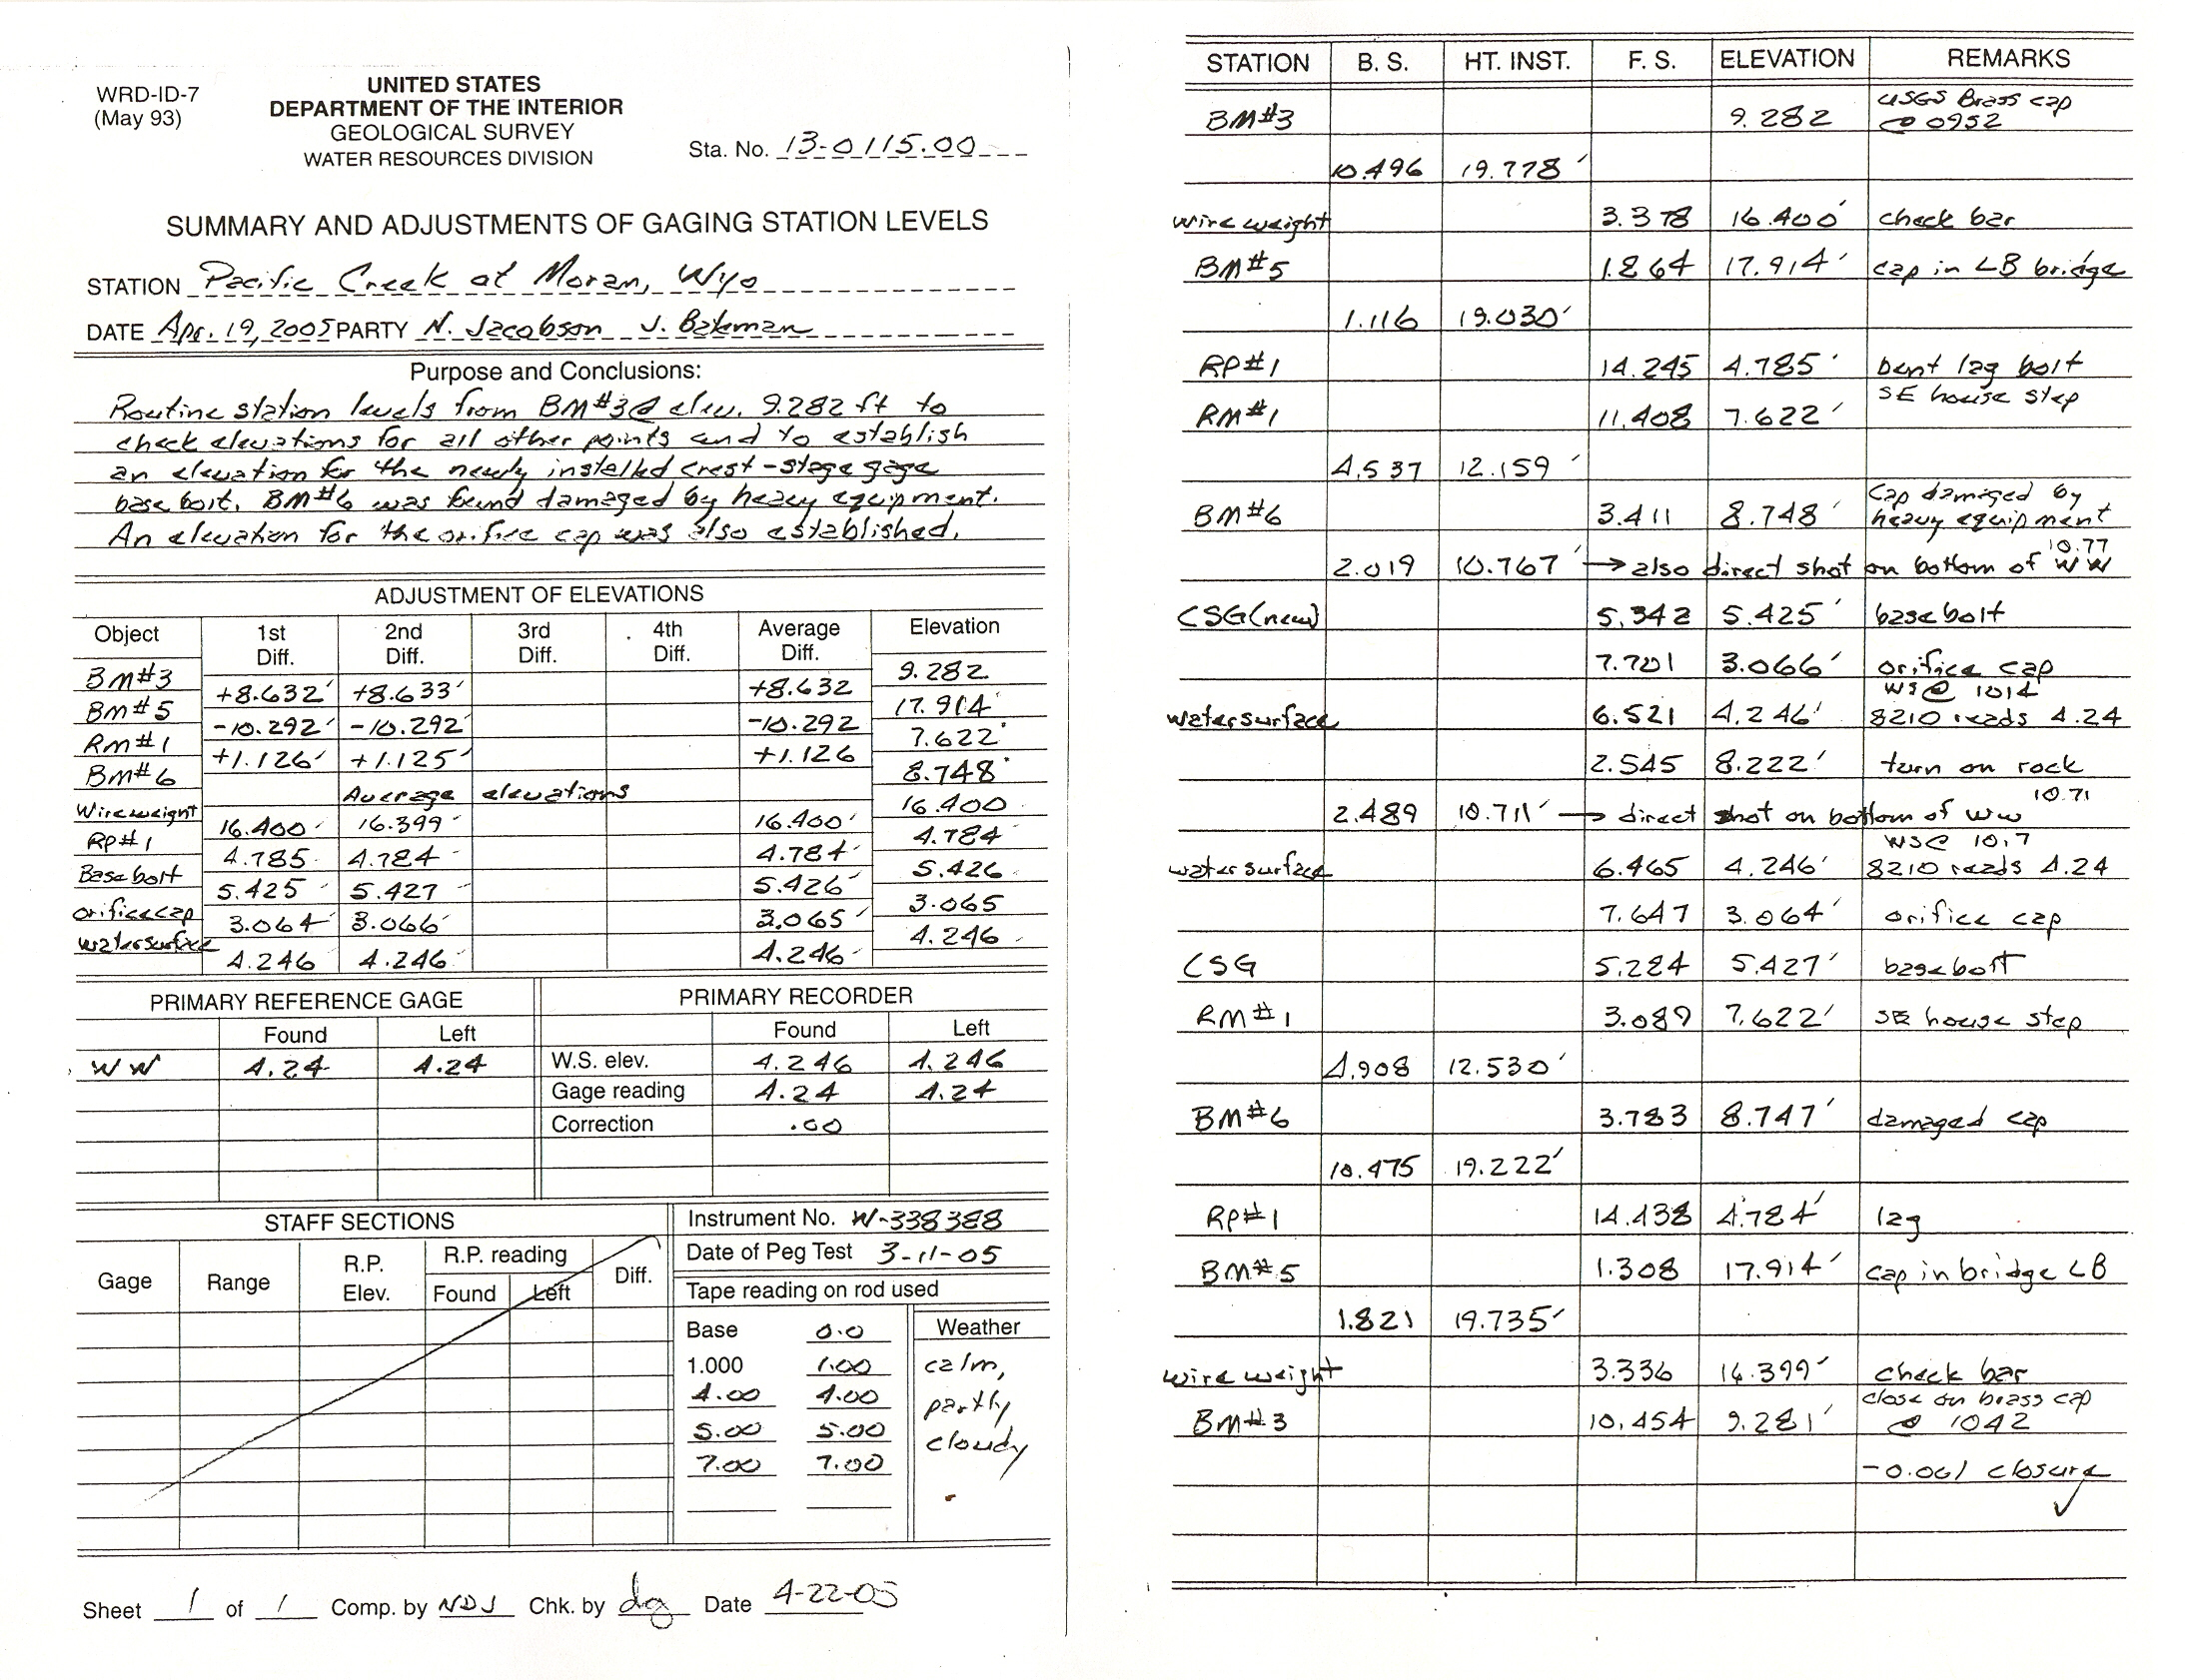 WRD-ID-7
(May 93)
UNITED STATES
DEPARTMENT OF THE INTERIOR
GEOLOGICAL SURVEY
WATER RESOURCES DIVISION
Sta. No. 13-0115.00
SUMMARY AND ADJUSTMENTS OF GAGING STATION LEVELS
STATION Pacific Creek at Moran, Wyo
DATE Apr. 19, 2005 PARTY N. Jacobson J. Bateman
Purpose and Conclusions:
Routine station levels from BM#3 @ elev. 9.282 ft to
check elevations for all other points and to establish
an elevation for the newly installed crest-stage gage
base bolt. BM#6 was found damaged by heavy equipment.
An elevation for the orifice cap was also established.
ADJUSTMENT OF ELEVATIONS
Object 1st Diff. 2nd Diff. 3rd Diff. 4th Diff. Average Diff. Elevation
BM#3 9.282
+8.632 +8.633 +8.632
BM#5 17.914
-10.292 -10.292 -10.292
RM#1 7.622
+1.126 +1.125 +1.126
BM#6 8.748
Average elevations
Wire weight 16.400 16.399 16.400 16.400
RP#1 4.785 4.784 4.784 4.784
Base bolt 5.425 5.427 5.426 5.426
orifice cap 3.064 3.066 3.065 3.065
water surface 4.246 4.246 4.246 4.246
PRIMARY REFERENCE GAGE
Found Left
WW 4.24 4.24
PRIMARY RECORDER
Found Left
W.S. elev. 4.246 4.246
Gage reading 4.24 4.24
Correction .00
STAFF SECTIONS
Gage Range R.P. Elev. R.P. reading Found Left Diff.
Instrument No. W-338388
Date of Peg Test 3-11-05
Tape reading on rod used
Base 0.0
1.000 1.00
4.00 4.00
5.00 5.00
7.00 7.00
Weather
calm,
partly
cloudy
Sheet 1 of 1 Comp. by NDJ Chk. by dg Date 4-22-05
STATION B. S. HT. INST. F. S. ELEVATION REMARKS
BM#3 9.282 USGS Brass cap @ 0952
10.496 19.778
wire weight 3.378 16.400 check bar
BM#5 1.864 17.914 cap in LB bridge
1.116 19.030
RP#1 14.245 4.785 bent lag bolt
RM#1 11.408 7.622 SE house step
4.537 12.159
BM#6 3.411 8.748 cap damaged by heavy equipment
2.019 10.767 → also direct shot on bottom of WW 10.77
CSG (new) 5.342 5.425 base bolt
7.701 3.066 orifice cap
water surface 6.521 4.246 WS @ 1014 8210 reads 4.24
2.545 8.222 turn on rock
2.489 10.711 → direct shot on bottom of WW 10.71
water surface 6.465 4.246 WS @ 10.7 8210 reads 4.24
7.647 3.064 orifice cap
CSG 5.284 5.427 base bolt
RM#1 3.089 7.622 SE house step
4.908 12.530
BM#6 3.783 8.747 damaged cap
10.475 19.222
RP#1 14.438 4.784 lag
BM#5 1.308 17.914 cap in bridge LB
1.821 19.735
wire weight 3.336 16.399 check bar
BM#3 10.454 9.281 close on brass cap @ 1042
-0.001 closure ✓